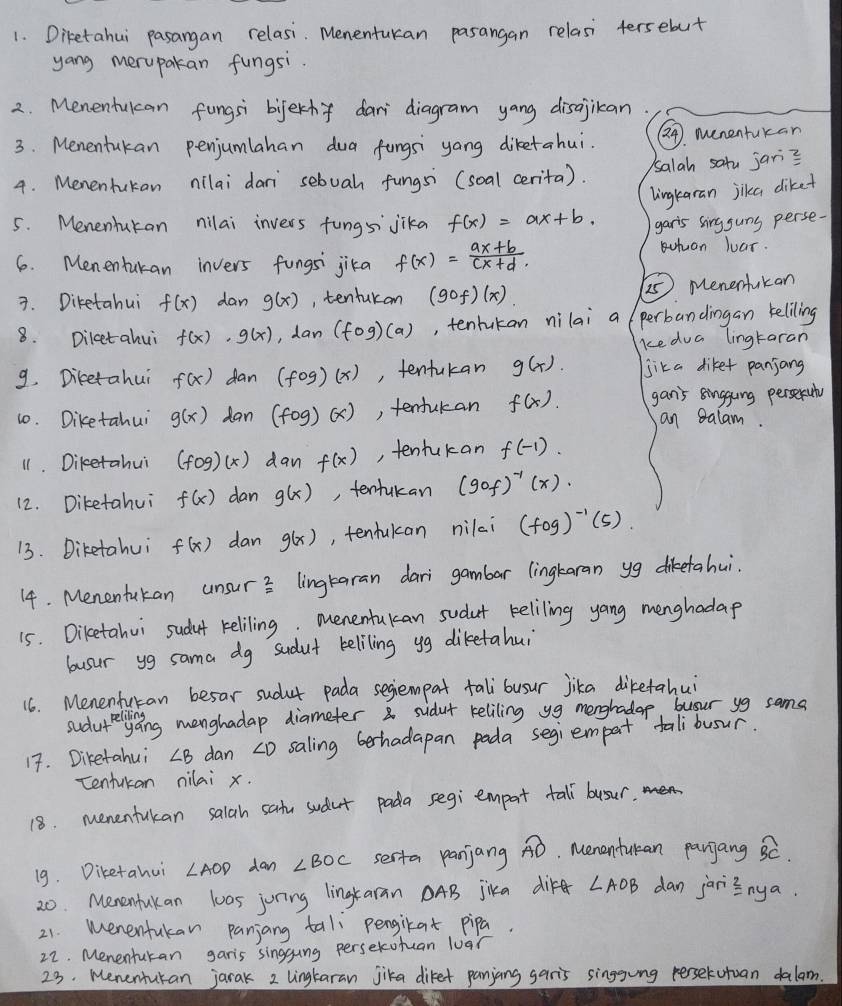 1. Diketahui pasangan relasi. Menentukan pasangan relasi tersebut
yang merupakan fungsi.
2. Menentukan fungsi bijektif dari diagram yang disajikan.
3. Menentukan penjumlahan dua fungsi yang diketahui.
4. Menentukan nilai dari sebuah fungsi (soal cerita).
5. Menentukan nilai invers fungsi jika f(x) = ax+b.
6. Menentukan invers fungsi jika f(x) = \frac{ax+b}{cx+d}.
7. Diketahui f(x) dan g(x), tentukan (gof)(x).
8. Diketahui f(x), g(x), dan (fog)(a), tentukan nilai a
9. Diketahui f(x) dan (fog)(x), tentukan g(x).
10. Diketahui g(x) dan (fog)(x), tentukan f(x).
11. Diketahui (fog)(x) dan f(x), tentukan f(-1).
12. Diketahui f(x) dan g(x), tentukan (gof)⁻¹(x).
13. Diketahui f(x) dan g(x), tentukan nilai (fog)⁻¹(5).
14. Menentukan unsur² lingkaran dari gambar lingkaran yg diketahui.
15. Diketahui sudut keliling. Menentukan sudut keliling yang menghadap
busur yg sama dg sudut keliling yg diketahui
16. Menentukan besar sudut pada segiempat tali busur jika diketahui
sudut keliling yang menghadap diameter & sudut keliling yg menghadap busur yg sama
17. Diketahui ∠B dan ∠D saling berhadapan pada segi empat tali busur.
Tentukan nilai x.
18. Menentukan salah satu sudut pada segi empat tali busur. men
19. Diketahui ∠AOD dan ∠BOC serta panjang AD. Menentukan panjang BC.
20. Menentukan luas juring lingkaran OAB jika diket ∠AOB dan jari²nya.
21. Menentukan panjang tali pengikat pipa.
22. Menentukan garis singgung persekutuan luar
23. Menentukan jarak 2 lingkaran jika diket panjang garis singgung persekutuan dalam.
24. Menentukan
salah satu jari²
lingkaran jika diket
garis singgung perse-
kutuan luar.
25 Menentukan
perbandingan keliling
kedua lingkaran
jika diket panjang
garis singgung persekutu
an dalam.